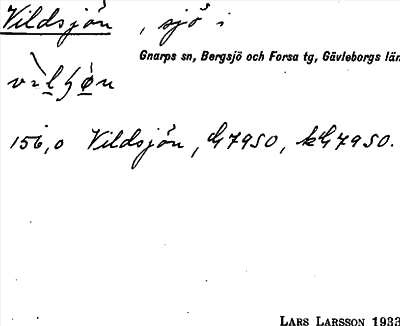 Vildsjön, sjö i
Gnarps sn, Bergsjö och Forsa tg, Gävleborgs län
156,0 Vildsjön, G7950, kG7950.
LARS LARSSON 1933